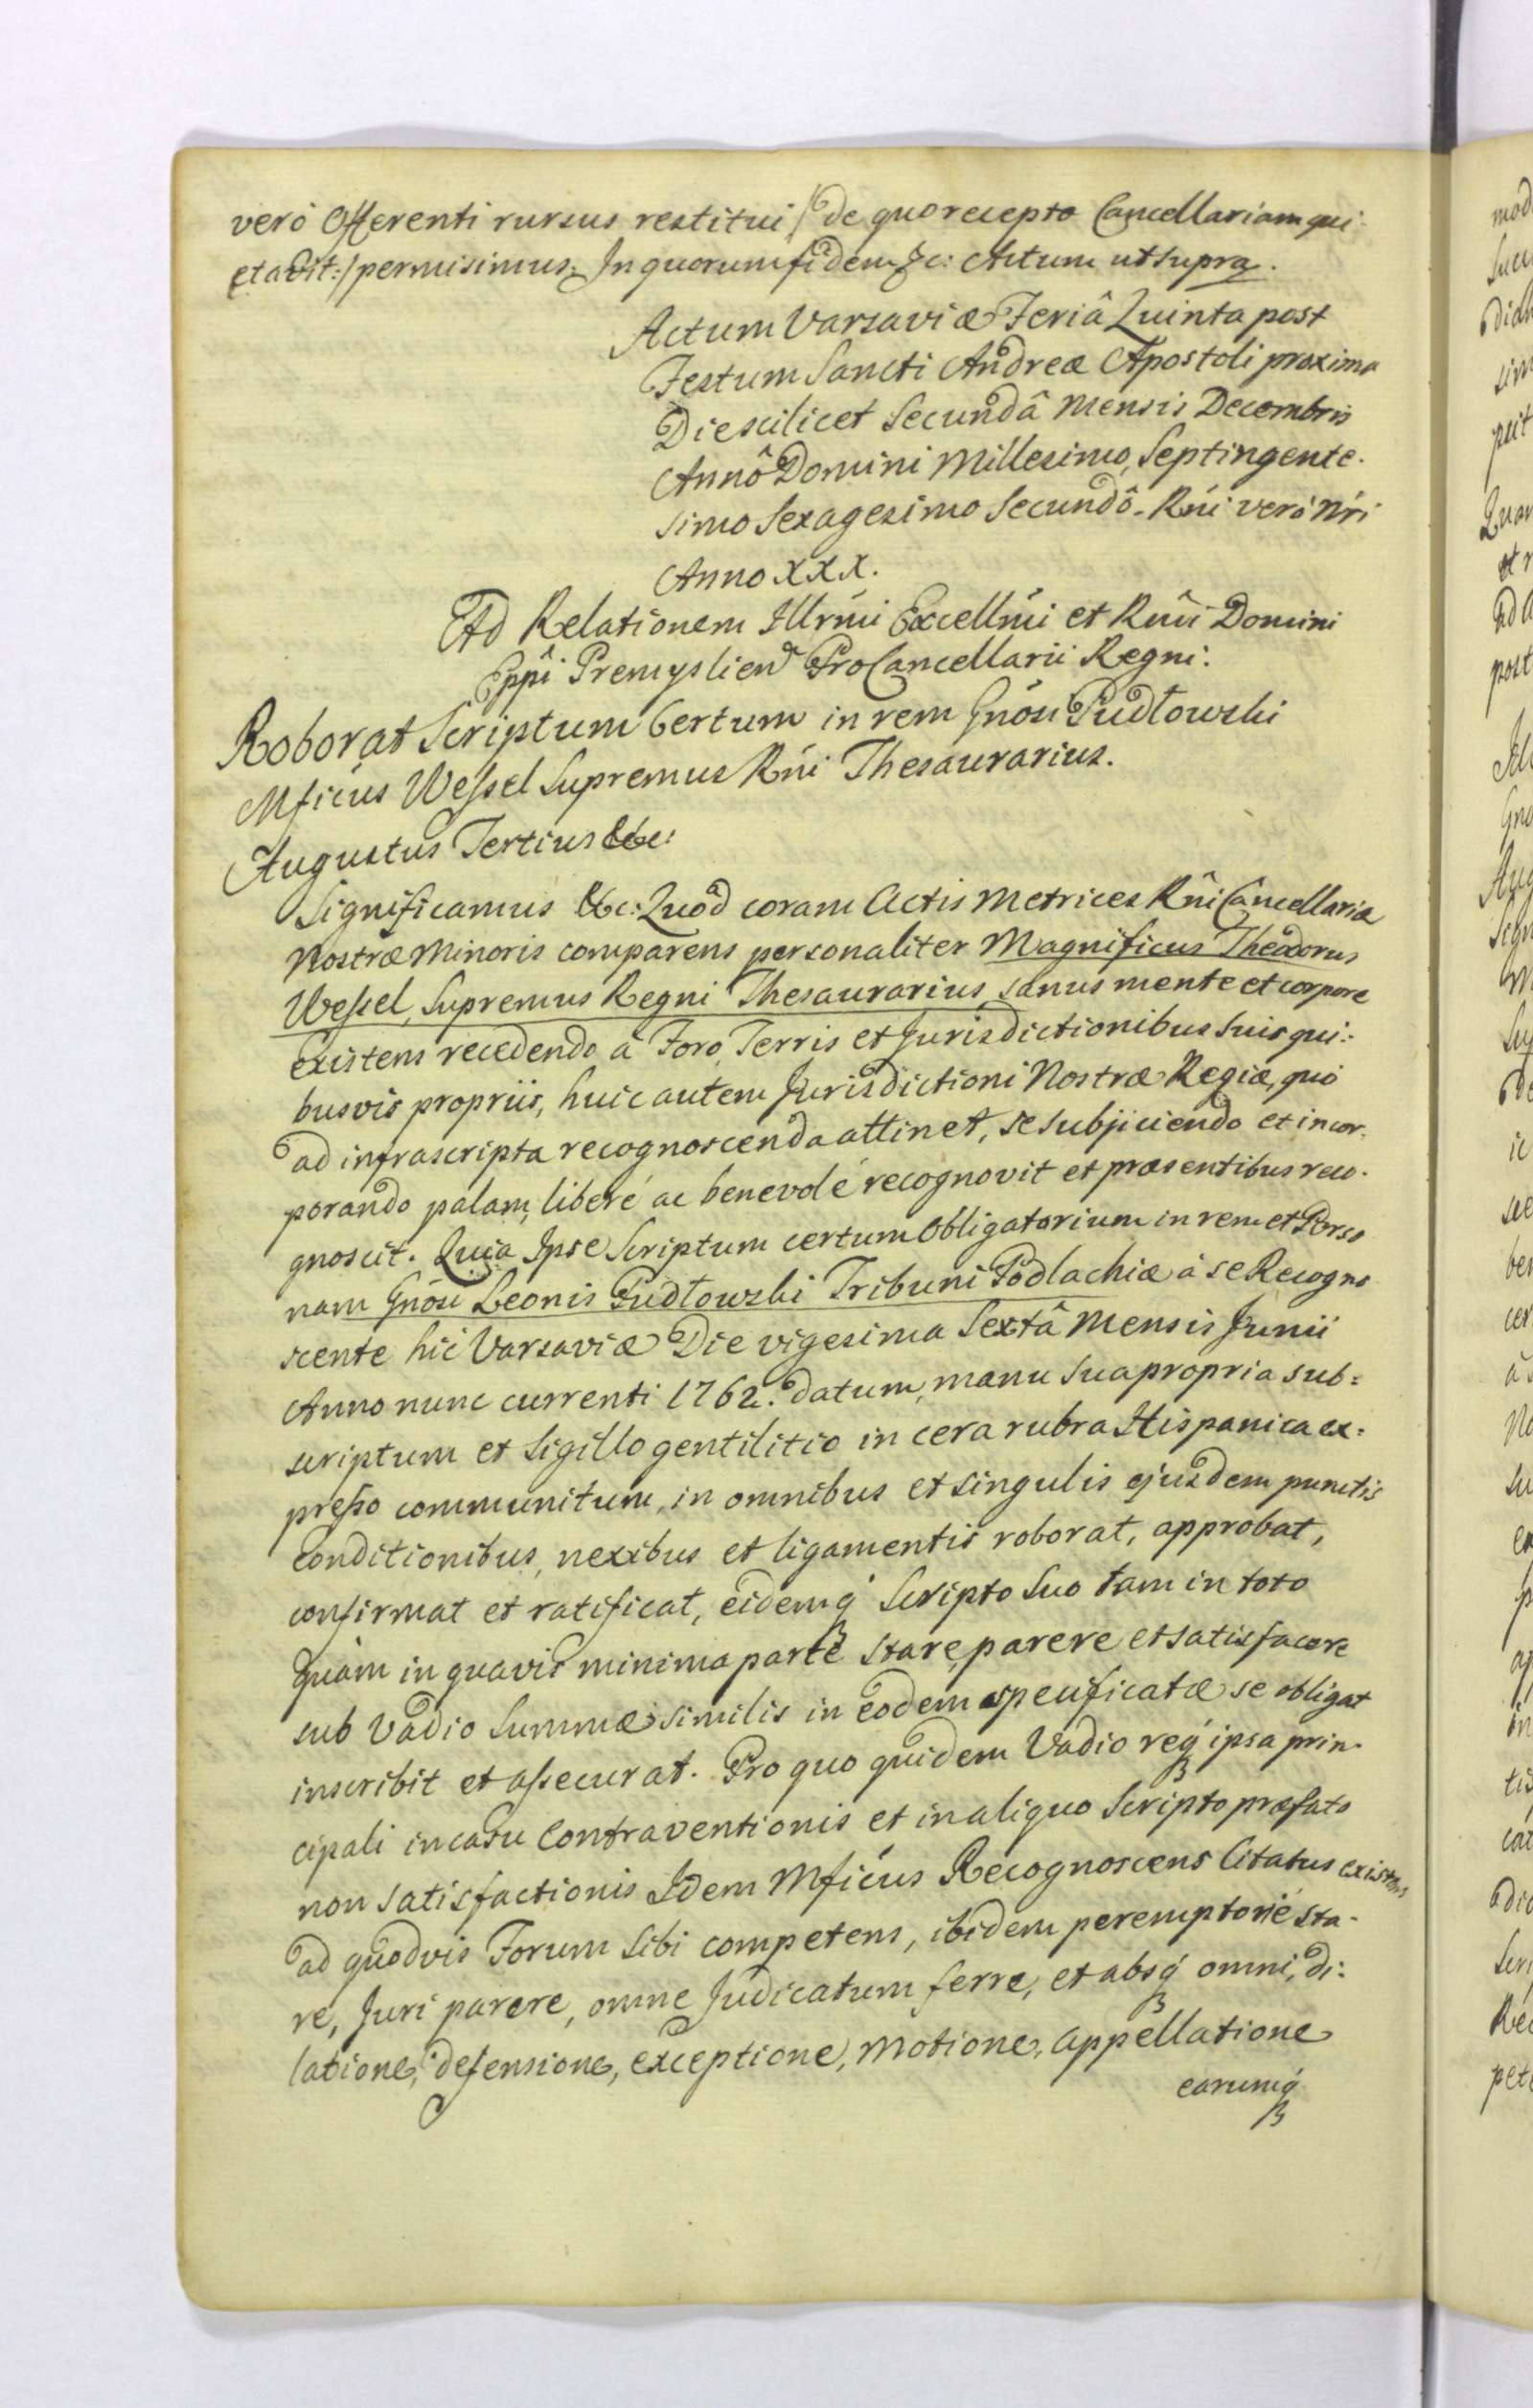 verò Offerenti rursus restitui /de quo recepto Cancellariam qui-
etavit:/ permisimus. In quorum fidem &c: Actum ut supra.
Actum Varsaviæ Feriâ Quinta post
Festum Sancti Andreæ Apostoli proxima
Die scilicet Secundâ Mensis Decembris
Annô Domini Millesimo, Septingente-
simo Sexagesimo Secundô. Rńi verò Nri
Anno XXX.
Ad Relationem Illrm̃i Excellm̃i et Rnḿi Domini
Eppi Premyslien ProCancellarii Regni.
Roborat Scriptum Certum in rem Gnósi Pudłowski
Mficús Weſsel Supremus Rńi Thesaurarius.
Augustus Tertius &c:
Significamus &c: Quòd coram Actis Metrices Rńi Cancellariæ
Nostræ Minoris comparens personaliter Magnificus Theodorus
Weſsel, Supremus Regni Thesaurarius sanus mente et corpore
existens recedendo à Foro, Terris et Jurisdictionibus Suis qui-
busvis propriis, huic autem Jurisdictioni Nostræ Regiæ, quò
ad infrascripta recognoscenda attinet, se subjiciendo et incor-
porando palam, liberé ac benevolé recognovit et præsentibus reco-
gnoscit. Quia Ipse Scriptum certum Obligatorium in rem et Perso
nam Gnósi Leonis Pudłowski Tribuni Podlachiæ à se Recogno
scente hic Varsaviæ Die vigesima Sextâ Mensis Junii
Anno nunc currenti 1762. datum, manu sua propria sub-
scriptum et Sigillo gentilitio in cera rubra Hispanica ex-
preſso communitum, in omnibus et singulis ejusdem punctis
conditionibus, nexibus et ligamentis roborat, approbat,
confirmat et ratificat, eidemq́ Scripto Suo tam in toto
quàm in quavis minima parte stare, parere et satisfacere
sub Vadio Summæ similis in eodem specificatæ se obligat
inscribit et aſsecurat. Pro quo quidem Vadio req́ ipsa prin-
cipali in casu Contraventionis et in aliquo Scripto præfato
non satisfactionis Idem Mficús Recognoscens Citatus existens
ad quodvis Forum Sibi competens, ibidem peremptorié sta-
re, Juri parere, omne Judicatum ferre, et absq́ omni, di-
latione, defensione, exceptione, Motione, appellatione
earumq́